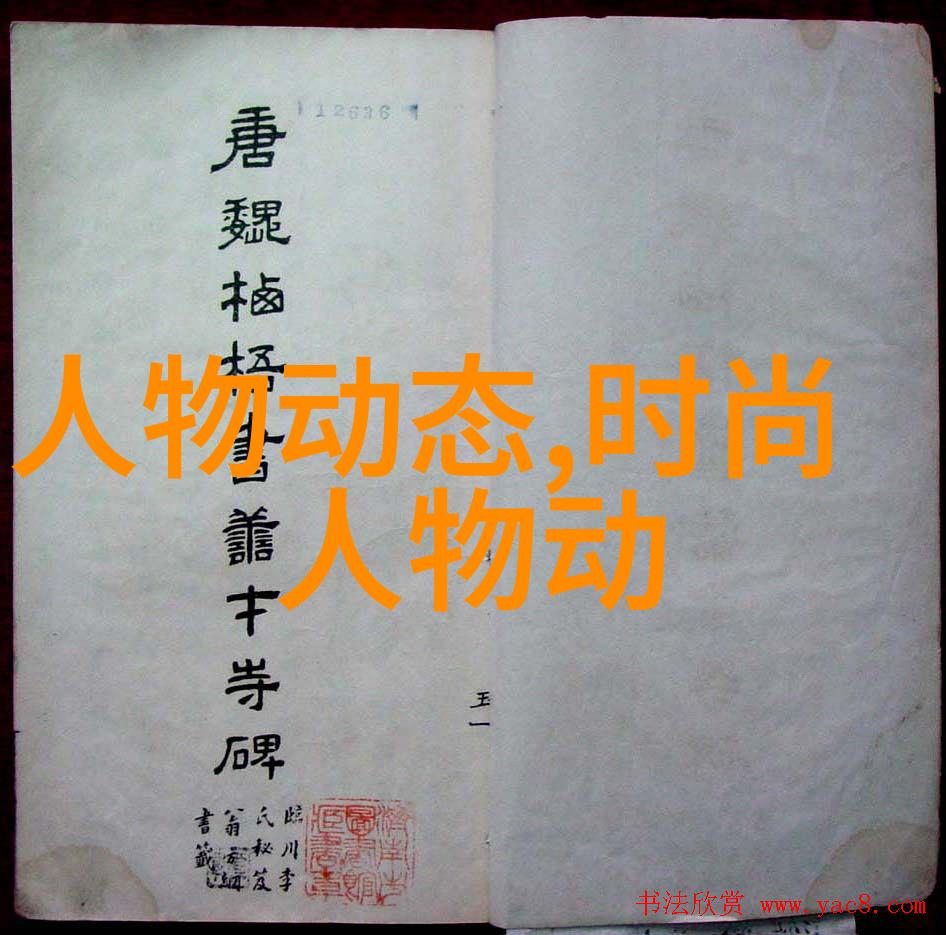 12636
唐魏栖梧書善才寺碑
臨川李
氏秘笈
翁方綱
書籤
王一
人物动态,时尚
人物动
书法欣赏 www.yac8.com